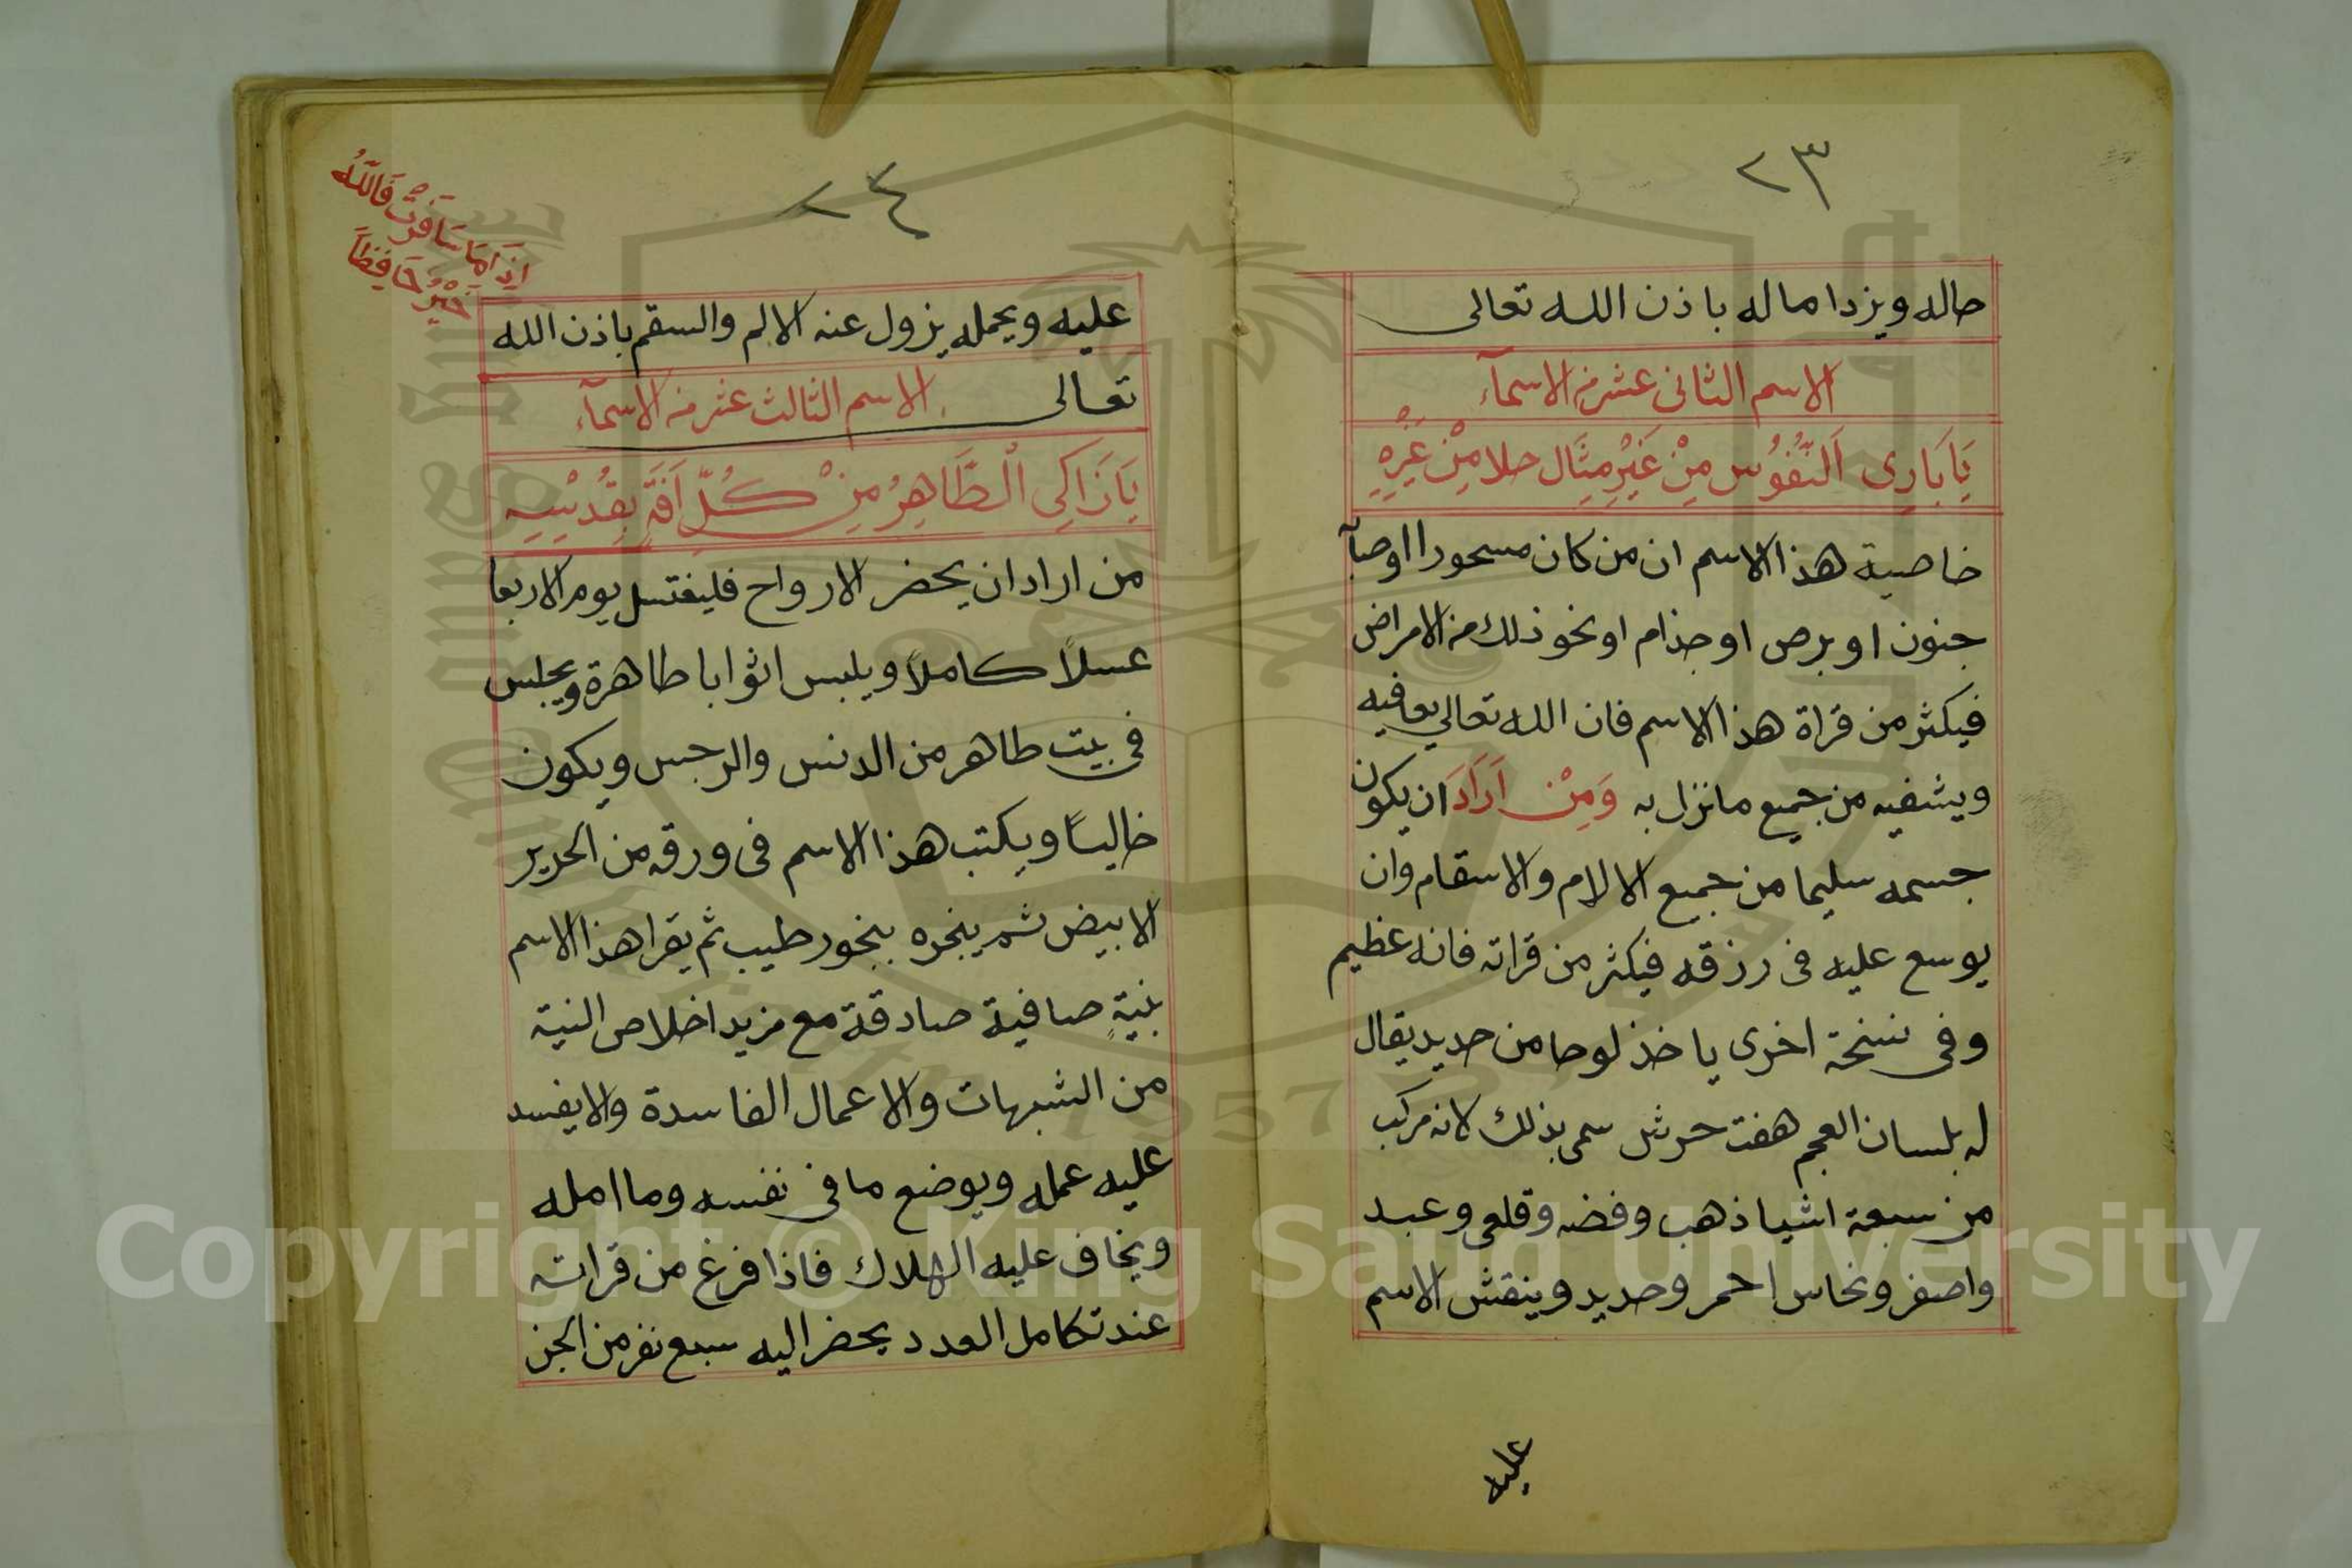 ٢٣
حاله ويزدا ماله باذن الله تعالى
الاسم الثانى عشر من الاسمآء
يَا بَارِى اَلنُّفُوُس مِنْ غَيْرِ مِثَال خلا مِنْ غَيْرِهِ
خاصية هذا الاسم ان من كان مسحورا اوصبآ
جنون او برص او جذام او نحو ذلك من الامراض
فيكثر من قراة هذا الاسم فان الله تعالى يعافيه
ويشفيه من جميع ما نزل به وَمِنْ اَرَادَ ان يكون
جسمه سليما من جميع الالام والاسقام وان
يوسع عليه فى رزقه فيكثر من قراته فانه عظيم
وفى نسخة اخرى ياخذ لوحا من حديد يقال
له بلسان العجم هفت حرش سمى بذلك لانه مركب
من سبعة اشيا ذهب وفضه وقلعى وعبد
واصفر ونحاس احمر وحديد وينقش الاسم
عليه
٢٤
اِذَا مَا سَافَرْتَ فَاللّهُ
خَيْرُ حَافِظاً
عليه ويحمله يزول عنه الالم والسقم باذن الله
تعالى الاسم الثالث عشر من الاسمآء
يَا زَاكِى الْطَّاهِرُ مِنْ كُلِّ اَفَةٍ بِقُدْسِهِ
من اراد ان يحضر الارواح فليغتسل يوم الاربعا
غسلاً كاملاً ويلبس اثوابا طاهرة ويجلس
فى بيت طاهر من الدنس والرجس ويكون
خالياً ويكتب هذا الاسم فى ورقه من الحرير
الابيض ثم يبخره ببخور طيب ثم يقرا هذا الاسم
بنيةٍ صافية صادقة مع مزيد اخلاص النية
من الشبهات والاعمال الفاسدة والا يفسد
عليه عمله ويوضع ما فى نفسه وما امله
ويخاف عليه الهلاك فاذا فرغ من قراته
عند تكامل العدد يحضر اليه سبع نفر من الجن
Copyright © King Saud University
1957